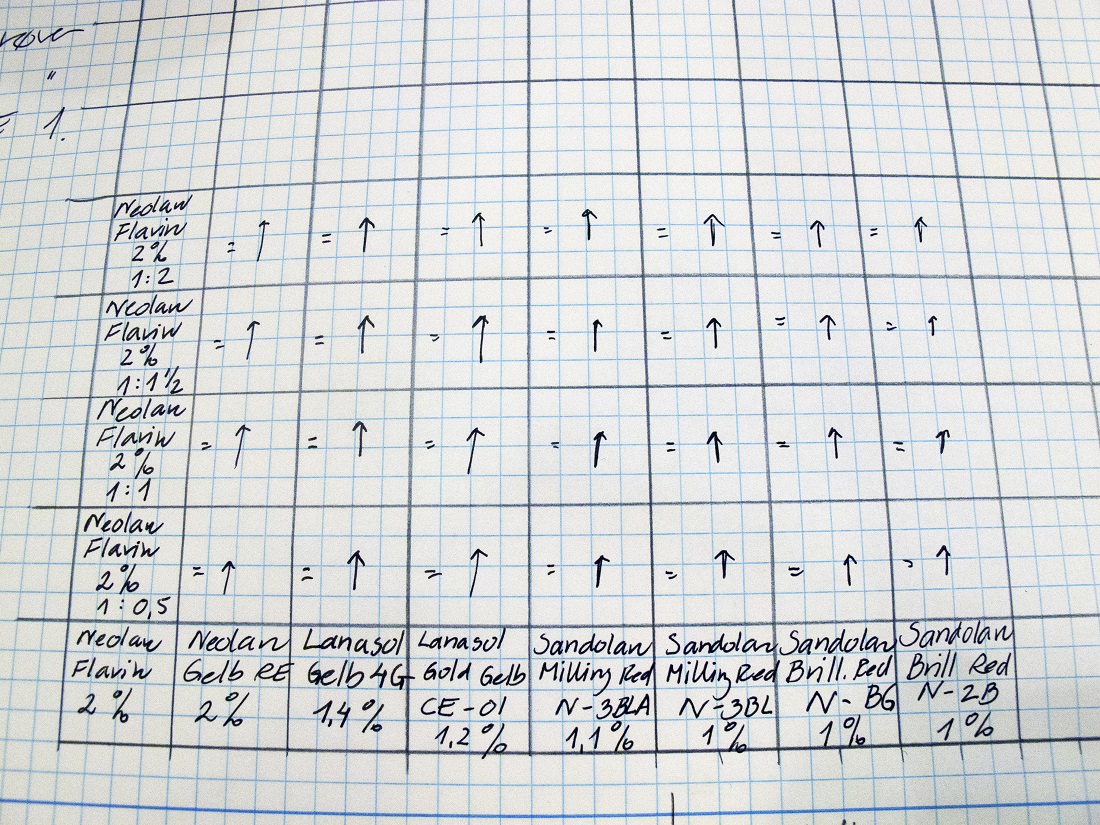 "
1.
Neolan
Flavin
2%
1:2
= ↑ = ↑ = ↑ = ↑ = ↑ = ↑ = ↑
Neolan
Flavin
2%
1:1½
= ↑ = ↑ = ↑ = ↑ = ↑ = ↑ = ↑
Neolan
Flavin
2%
1:1
= ↑ = ↑ = ↑ = ↑ = ↑ = ↑ = ↑
Neolan
Flavin
2%
1:0,5
= ↑ = ↑ = ↑ = ↑ = ↑ = ↑ = ↑
Neolan
Flavin
2%
Neolan
Gelb RE
2%
Lanasol
Gelb 4G
1,4%
Lanasol
Gold Gelb
CE-01
1,2%
Sandolan
Milling Red
N-3BLA
1,1%
Sandolan
Milling Red
N-3BL
1%
Sandolan
Brill. Red
N-BG
1%
Sandolan
Brill Red
N-2B
1%